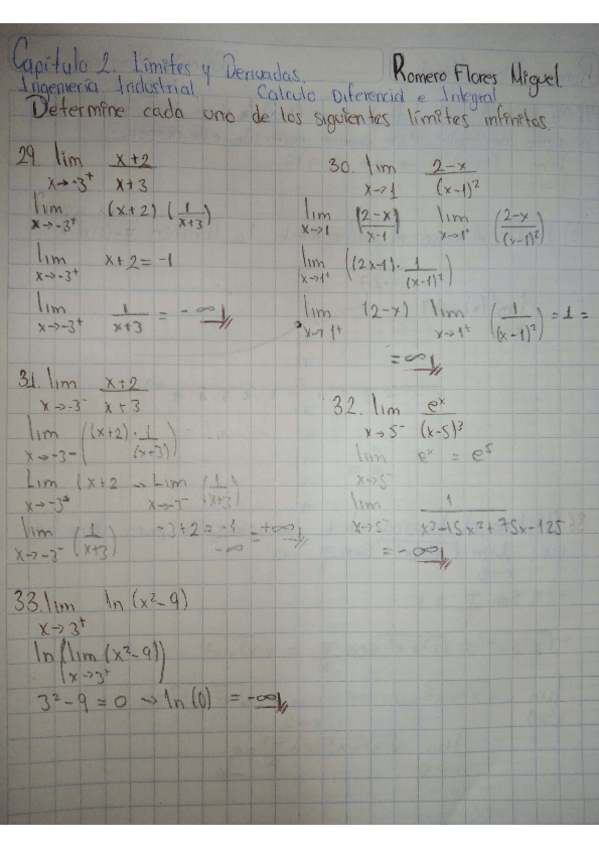 Capítulo 2. Límites y Derivadas.
Romero Flores Miguel
Ingeniería Industrial. Calculo Diferencial e Integral
Determine cada uno de los siguientes límites infinitos.
29. lim x→-3⁺ (x+2)/(x+3)
lim x→-3⁺ (x+2) (1/(x+3))
lim x→-3⁺ x+2 = -1
lim x→-3⁺ 1/(x+3) = -∞
30. lim x→1 (2-x)/(x-1)²
lim x→1 (2-x)/(x-1) lim x→1⁺ ((2-x)/(x-1)²)
lim x→1⁺ ((2x-1)·1/(x-1)²)
lim x→1⁺ (2-x) lim x→1⁺ (1/(x-1)²) = 1 =
= ∞
31. lim x→-3⁻ (x+2)/(x+3)
lim x→-3- ((x+2)·1/(x+3))
Lim x→-3 (x+2 → Lim x→-3⁻ (1/(x+3))
lim x→-3⁻ (1/(x+3)) -3+2 = -1/-∞ = +∞
32. lim x→5⁻ eˣ/(x-5)³
lim x→5⁻ eˣ = e⁵
lim x→5⁻ 1/(x³-15x²+75x-125)
= -∞
33. lim x→3⁺ ln(x²-9)
ln(lim x→3⁺ (x²-9))
3²-9=0 → ln(0) = -∞